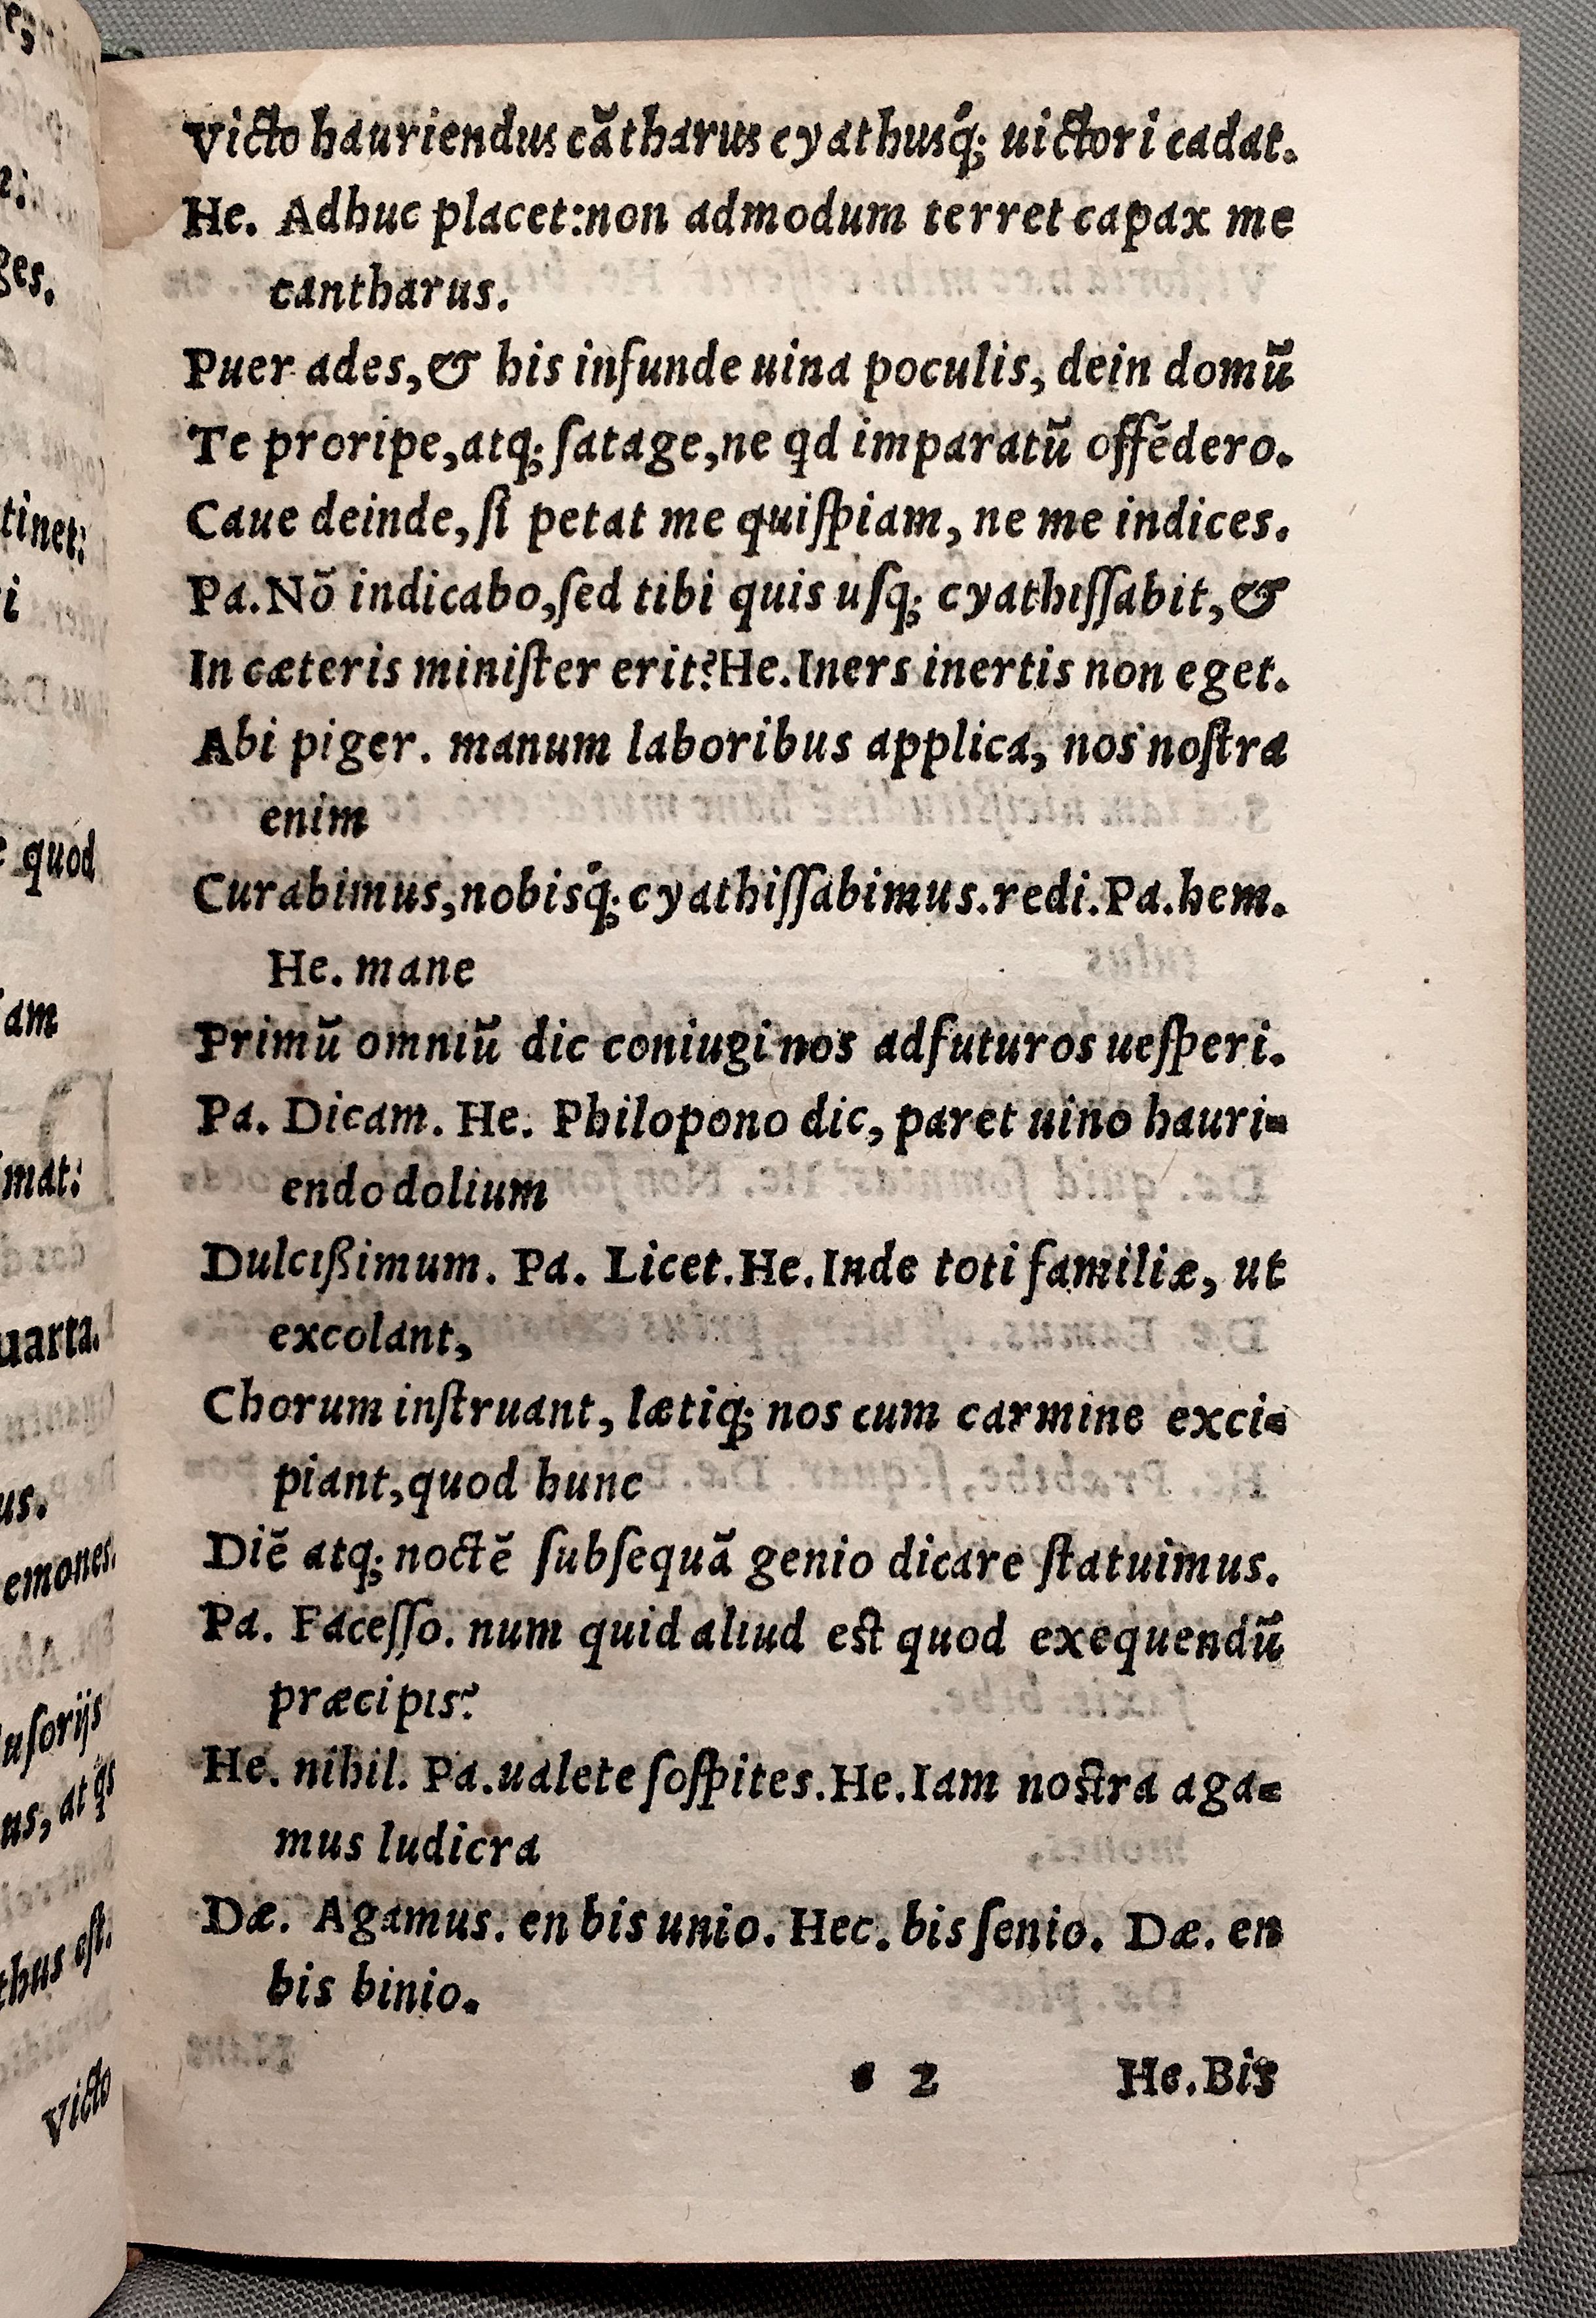 Victo hauriendus cãtharus cyathusq́; uictori cadat.
He. Adhuc placet:non admodum terret capax me
cantharus.
Puer ades,& his infunde uina poculis, dein domũ
Te proripe,atq; ſatage,ne qd imparatũ offẽdero.
Caue deinde,ſi petat me quiſpiam, ne me indices.
Pa.Nõ indicabo,ſed tibi quis uſq; cyathiſſabit,&
In cæteris miniſter erit?He.Iners inertis non eget.
Abi piger. manum laboribus applica, nos noſtra
enim
Curabimus,nobisq́;cyathiſſabimus.redi.Pa.hem.
He. mane
Primũ omniũ dic coniugi nos adfuturos ueſperi.
Pa. Dicam. He. Philopono dic, paret uino hauri-
endo dolium
Dulcißimum. Pa. Licet.He.Inde toti familiæ, ut
excolant,
Chorum inſtruant, lætiq; nos cum carmine exci-
piant,quod hunc
Diẽ atq; noctẽ ſubſequã genio dicare ſtatuimus.
Pa. Faceſſo. num quid aliud est quod exequendũ
præcipis?
He. nihil. Pa.ualete ſoſpites.He.Iam nostra aga-
mus ludicra
Dæ. Agamus. en bis unio. Hec. bis ſenio. Dæ. en
bis binio.
e 2 He.Bis